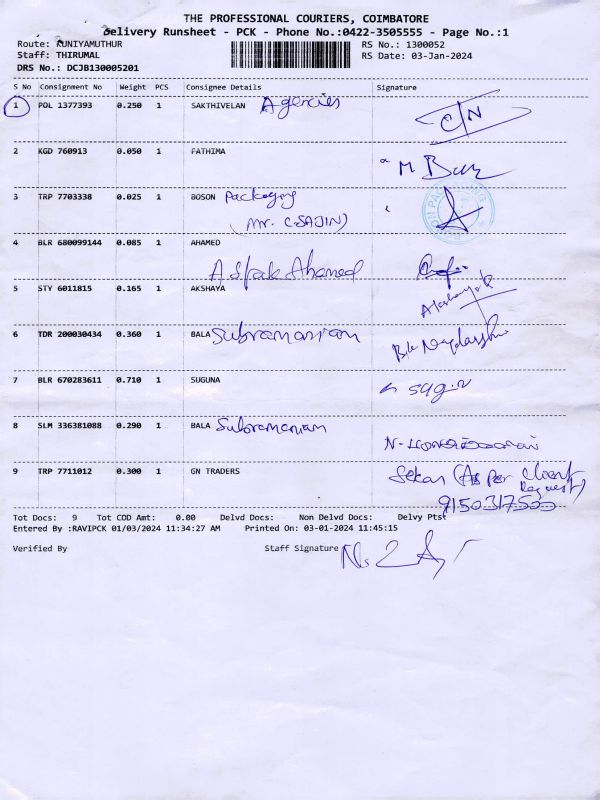 THE PROFESSIONAL COURIERS, COIMBATORE
Delivery Runsheet - PCK - Phone No.:0422-3505555 - Page No.:1
Route: KUNIYAMUTHUR RS No.: 1300052
Staff: THIRUMAL RS Date: 03-Jan-2024
DRS No.: DCJB130005201
S No Consignment No Weight PCS Consignee Details Signature
1 POL 1377393 0.250 1 SAKTHIVELAN Agencies C/N
2 KGD 760913 0.050 1 FATHIMA M
3 TRP 7703338 0.025 1 BOSON Packaging
(Mr. C.SAJIN)
4 BLR 680099144 0.085 1 AHAMED
Ahamed
5 STY 6011815 0.165 1 AKSHAYA
6 TDR 200030434 0.360 1 BALA Subramaniam
7 BLR 670283611 0.710 1 SUGUNA
8 SLM 336381088 0.290 1 BALA Subramaniam
9 TRP 7711012 0.300 1 GN TRADERS Sekar (As Per Client
Request)
9150317500
Tot Docs: 9 Tot COD Amt: 0.00 Delvd Docs: Non Delvd Docs: Delvy Pts:
Entered By :RAVIPCK 01/03/2024 11:34:27 AM Printed On: 03-01-2024 11:45:15
Verified By Staff Signature